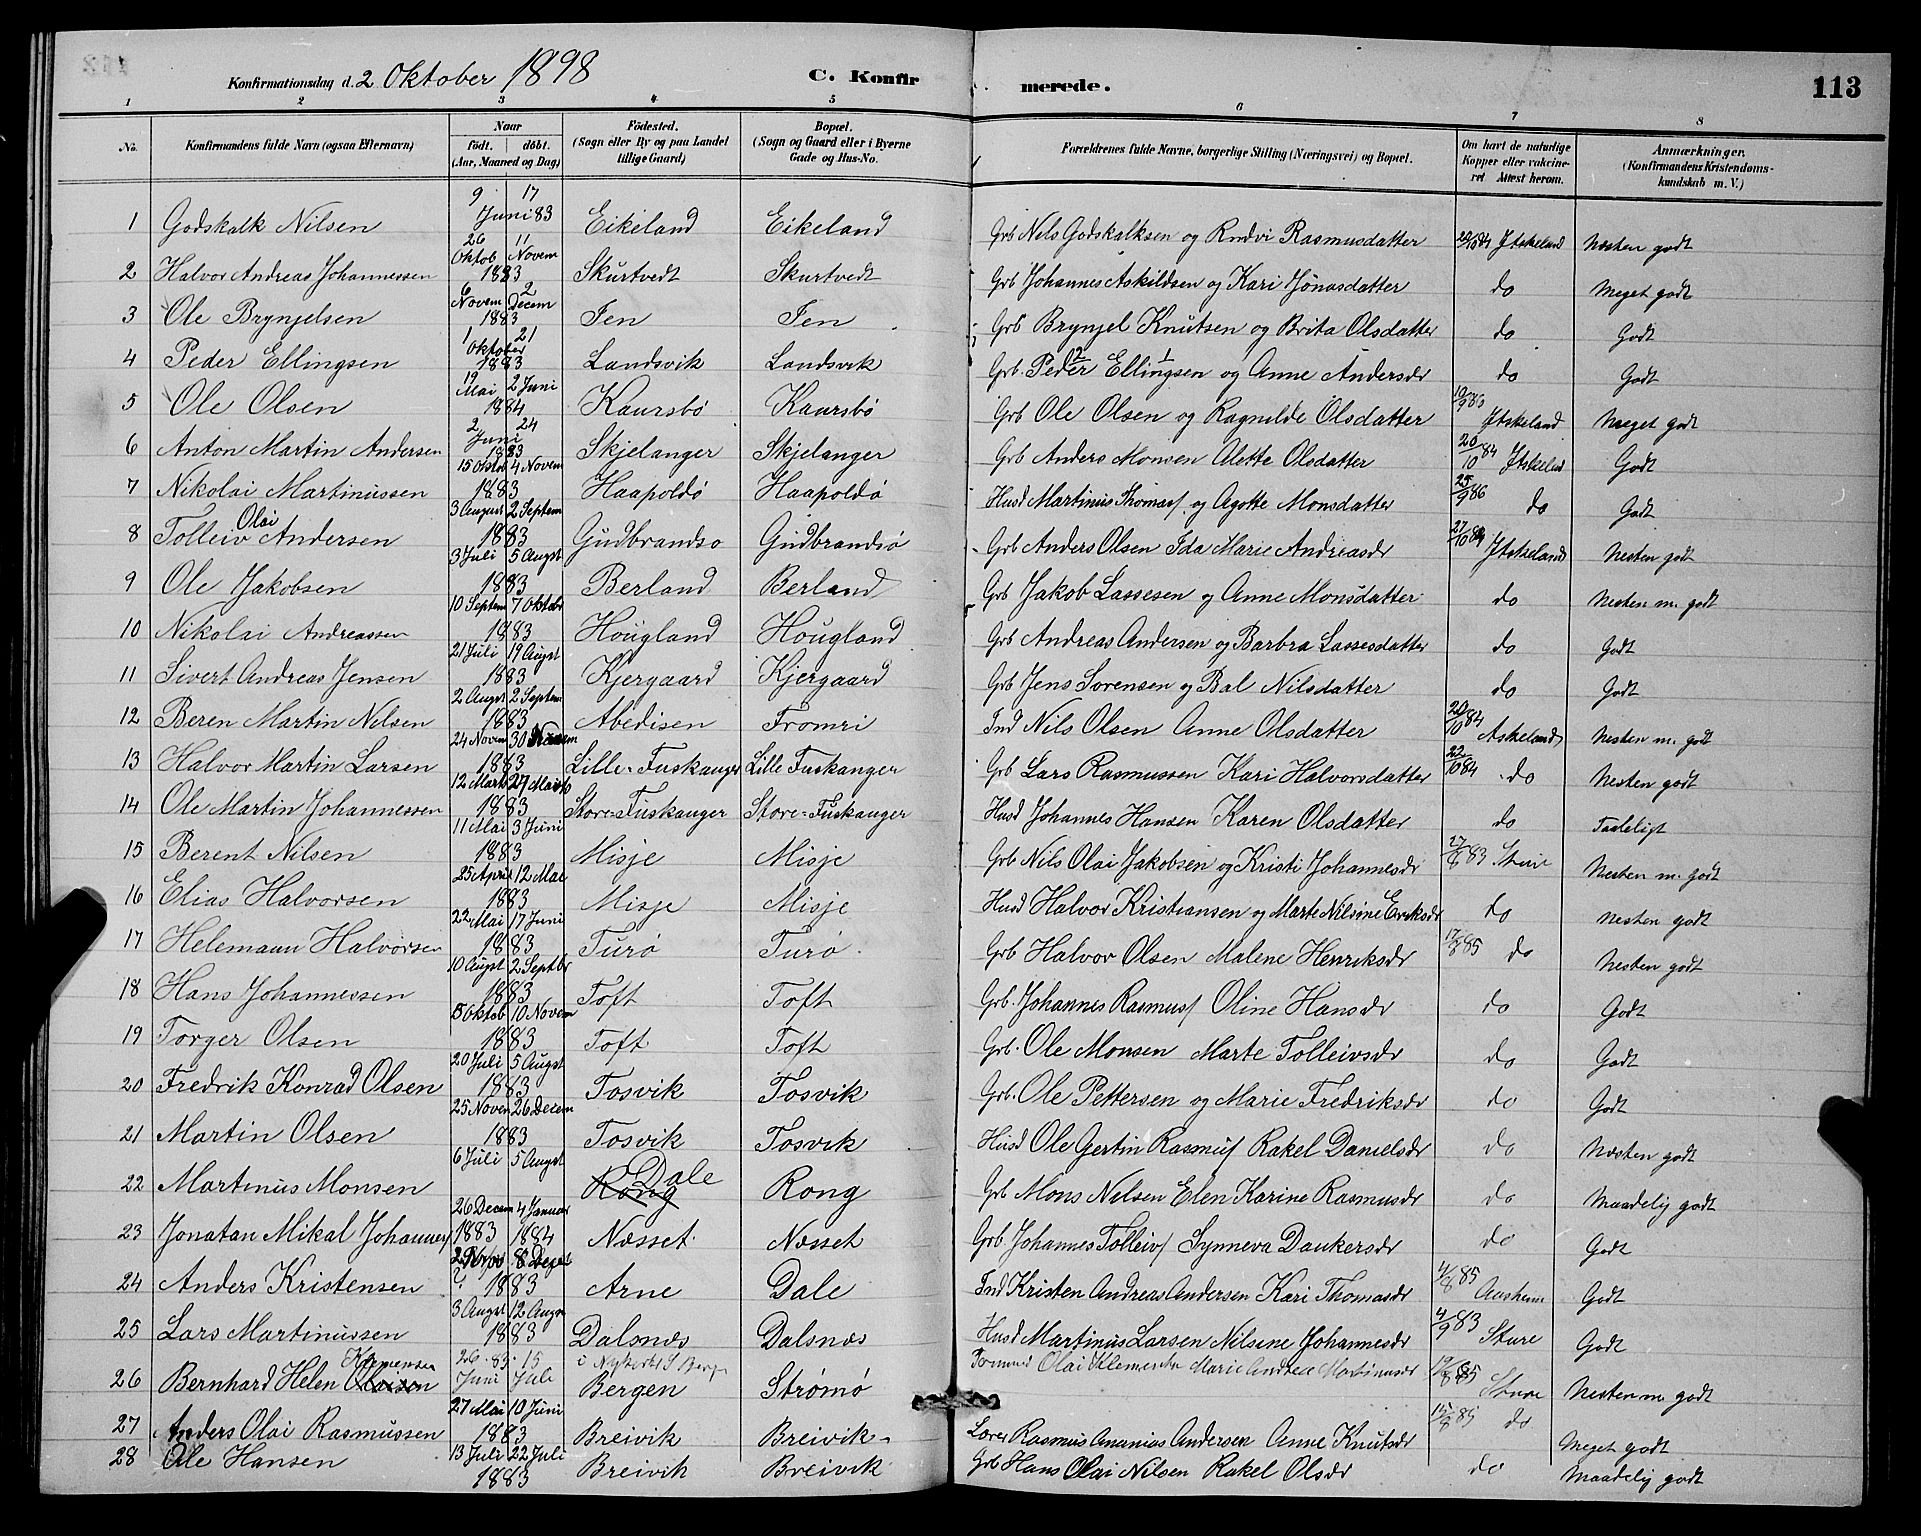 Konfirmationsdag d. 2 Oktober 1898 C. Konfirmerede. 113
1 2 3 4 5 6 7 8
No. Konfirmandens fulde Navn (ogsaa Efternavn) Naar født. døbt. (Aar, Maaned og Dag) Fødested. (Sogn eller By og paa Landet tillige Gaard) Bopæl. (Sogn og Gaard eller i Byerne Gade og Hus-No. Forældrenes fulde Navne, borgerlige Stilling (Næringsvei) og Bopæl. Om havt de naturlige Kopper eller vakcineret Attest herom. Anmærkninger, (Konfirmandens Kristendomskundskab m. V.)
1 Godskalk Nilsen 9 17 Juni 83 Eikeland Eikeland Grb Nils Godskalksen og Rndvi Rasmusdatter Næsten godt
2 Halvor Andreas Johannessen 26 Oktob 11 Novem 1883 Skurtvedt Skurtvedt Grb Johannes Askildsen og Kari Jonasdatter do Meget godt
3 Ole Brynjelsen 6 Novem 2 Decem 1883 Fen Fen Grb Brynjel Knutsen og Brita Olsdatter do Godt
4 Peder Ellingsen 1 21 Oktober 1883 Landsvik Landsvik Grb. Peder 2 Ellingsen 1 og Anne Andersdr do Godt
5 Ole Olsen 19 Mai 2 Juni 1884 Kaursbø Kaursbø Grb Ole Olsen og Ragnilde Olsdatter Meget godt
6 Anton Martin Andersen 2 24 Juni 1883 Skjelanger Skjelanger Grb Anders Monsen Alette Olsdatter 20/10 84 Godt
7 Nikolai Martinussen 15 Oktob 4 Novem 1883 Haapoldø Haapoldø Husd Martinus Thomas/ og Agotte Monsdatter 25/9 86 do Godt
8 Tolleiv Olai Andersen 3 August 2 Septem 1883 Gudbrandsø Gudbrandsø Grb Anders Olsen Ida Marie Andreasdr Nesten godt
9 Ole Jakobsen 3 Juli 5 Augst 1883 Berland Berland Grb Jakob Lassesen og Anne Monsdatter do Nesten m. godt
10 Nikolai Andreassen 10 Septem 7 Oktobr 1883 Hougland Hougland Grb Andreas Andersen og Barbra Lassesdatter do Godt
11 Sivert Andreas Jensen 21 Juli 19 Augst 1883 Kjergaard Kjergaard Grb Jens Sorensen og Bal Nilsdatter do Godt
12 Beren Martin Nilsen 2 Augst 2 Septem 1883 Abedisen Fromri Ind Nils Olsen Anne Olsdatter 20/10 84 Askeland Nesten m. godt
13 Halvor Martin Larsen 24 Novem 30 1883 Lille-Fuskanger Lille Fuskanger Grb Lars Rasmussen Kari Halvorsdatter 22/10 84 do Nesten godt
14 Ole Martin Johannessen 12 Marts 27 Marts 1883 Store-Fuskanger Store-Fuskanger Husd Johannes Hansen Karen Olsdatter do Taaleligt
15 Berent Nilsen 11 Mai 3 Juni 1883 Misje Misje Grb Nils Olai Jakobsen og Kristi Johannesdr 27/8 83 Sture Nesten m. godt
16 Elias Halvorsen 25 April 12 Mai 1883 Misje Misje Husd Halvor Kristiansen og Marte Nilsine Eriksdr do Nesten godt
17 Helemann Halvorsen 22 Mai 17 Juni 1883 Turø Turø Grb Halvor Olsen Malene Henriksdr 17/8 85 do Nesten godt
18 Hans Johannessen 10 Augst 2 Septbr 1883 Toft Toft Grb. Johannes Rasmus/ Oline Hansdr do Godt
19 Torger Olsen 5 Oktob 10 Novem 1883 Toft Toft Grb. Ole Monsen Marte Tolleivsdr do Godt
20 Fredrik Konrad Olsen 20 Juli 5 Augst 1883 Tosvik Tosvik Grb. Ole Pettersen og Marie Fredriksdr do Godt
21 Martin Olsen 25 Novem 26 Decem 1883 Tosvik Tosvik Husd Ole Gertin Rasmus/ Rakel Danielsdr do Næsten godt
22 Martinus Monsen 6 Juli 5 Augst Rong Dale Rong Grb Mons Nilsen Elen Karine Rasmusdr do Maadelig godt
23 Jonatan Mikal Johannes/ 26 Decem 4 Januar 1883 1884 Næsset Næsset Grb. Johannes Tolleiv/ Synneva Dankersdr do Godt
24 Anders Kristensen 1883 Arne Dale Ind Kristen Andreas Andersen Kari Thomasdr 4/8 85 Godt
25 Lars Martinussen 3 Augst 12 Augst 1883 Dalsnæs Dalsnæs Husd Martinus Larsen Nilsene Johannesdr 4/9 83 Sture Godt
26 Bernhard Helen Olaisen Klemensen 26. 83. 15 Juni Juli i Nykirke i Berge Bergen Strømø Olai Klemensen Marie Andrea Martinusdr Sture Nesten m. godt
27 Anders Olai Rasmussen 27 Mai 10 Juni 1883 Breivik Breivik Lærer Rasmus Ananias Andersen Anne Knutsdr 15/8 85 do Meget godt
28 Ole Hansen 13 Juli 22 Juli 1883 Breivik Breivik Grb Hans Olai Nilsen Rakel Olsdr do Maadelig godt